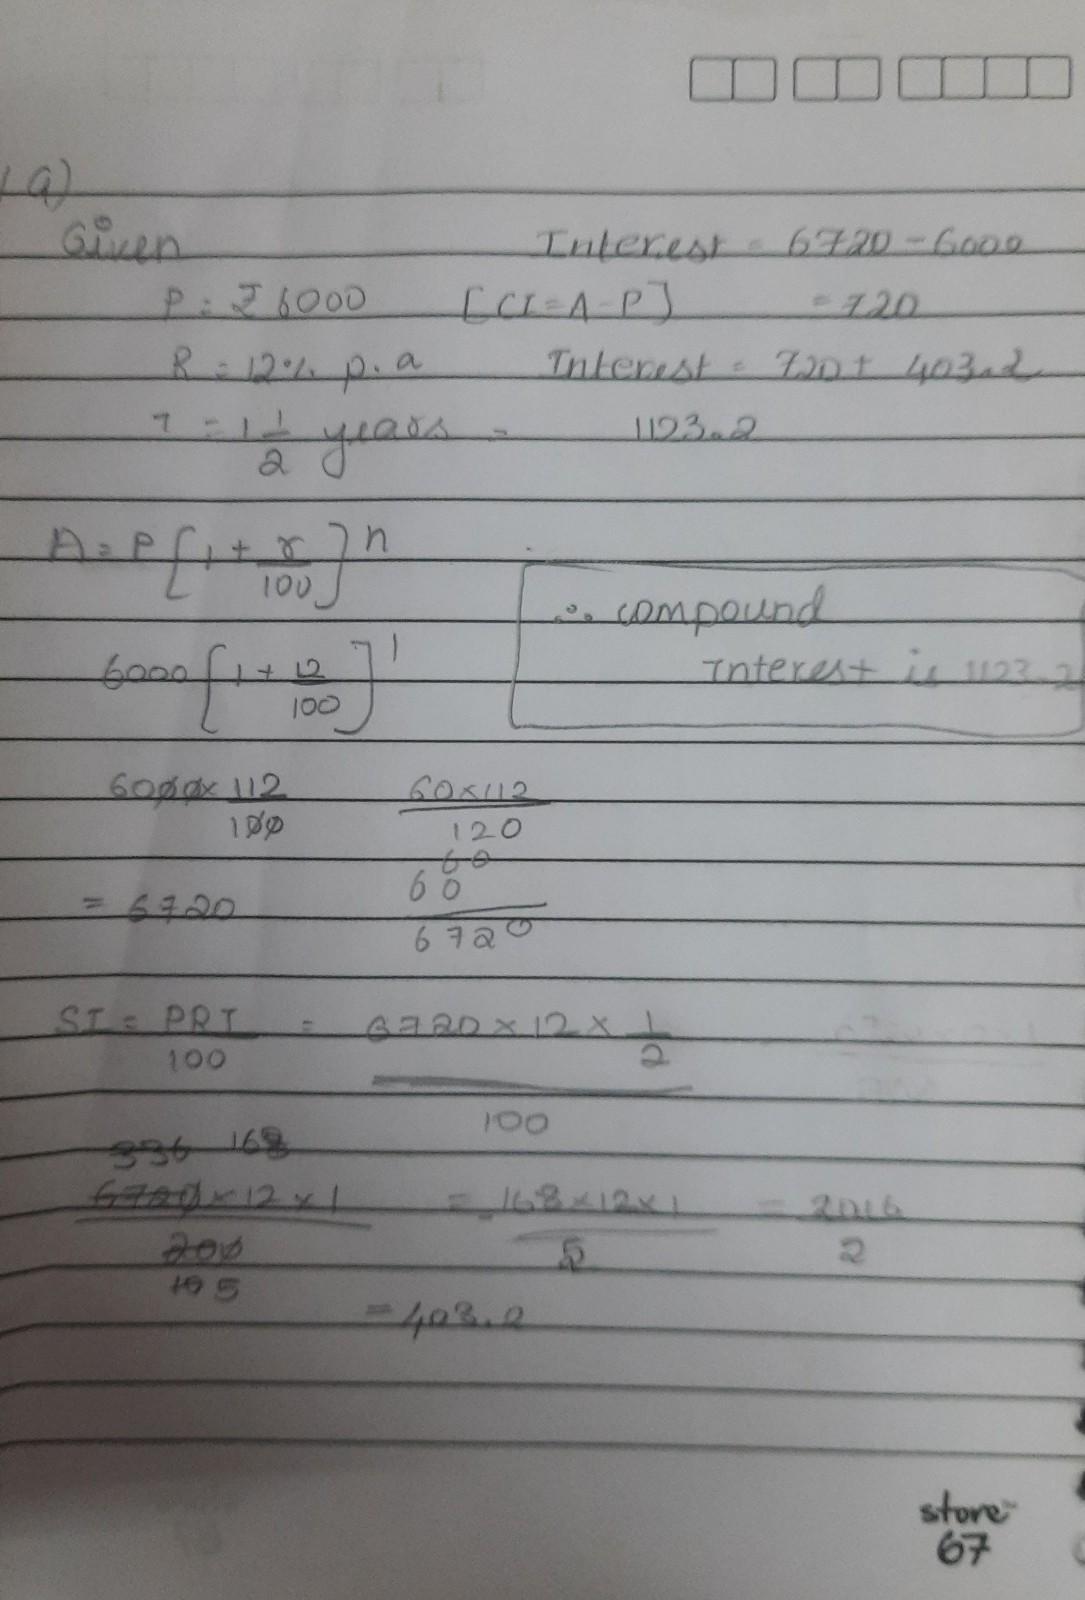 1 a)
Given
P = ₹ 6000
R = 12% p.a
T = 1 1/2 years
Interest = 6720 - 6000
[CI = A - P] = 720
Interest = 720 + 403.2
= 1123.2
A = P [1 + r/100] n
6000 [1 + 12/100] 1
∴ compound
Interest is 1123.2
6000 × 112/100
= 6720
60×112
120
60
60
6720
SI = PRT/100 = 6720 × 12 × 1/2
100
336 168
6720 × 12 × 1 = 168×12×1 = 2016
200 5 2
10 5
= 403.2
store
67